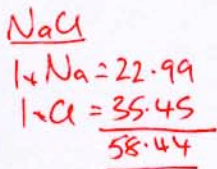 NaCl
1xNa = 22.99
1xCl = 35.45
58.44